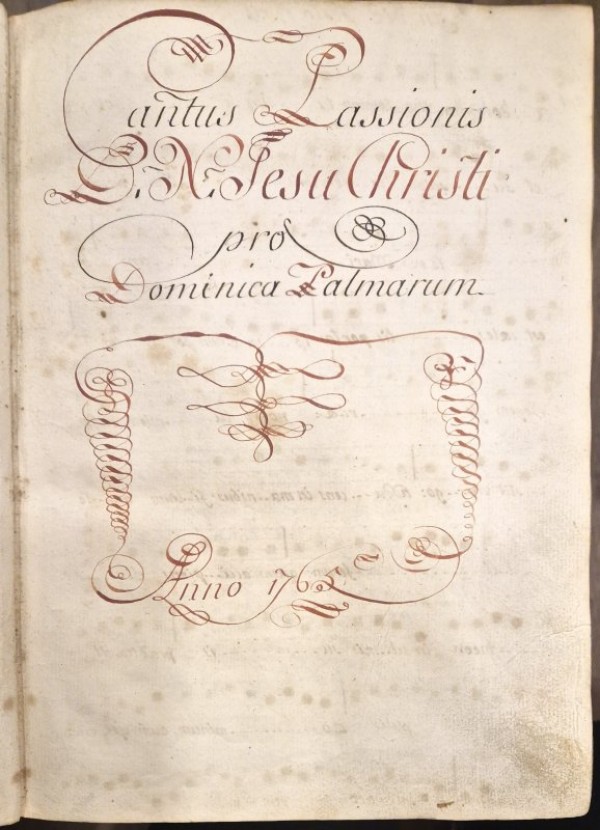 Cantus Passionis
D. N. Jesu Christi
pro
Dominica Palmarum
Anno 1765